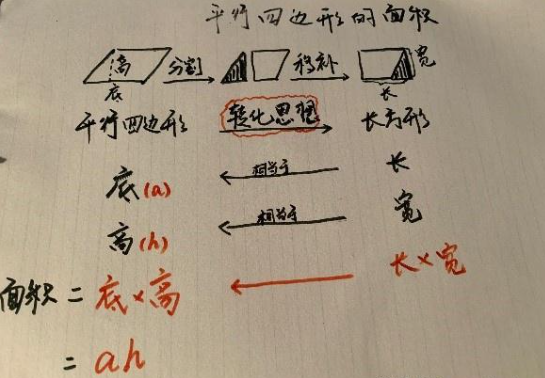 平行四边形的面积
高 分割 移补 宽
底 长
平行四边形 转化思想 长方形
底(a) 相当于 长
高(h) 相当于 宽
面积 = 底×高 长×宽
= ah